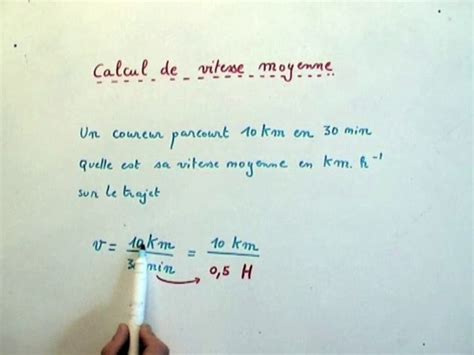 Calcul de vitesse moyenne
Un coureur parcourt 10 km en 30 min
Quelle est sa vitesse moyenne en km.h⁻¹
sur le trajet
v = 10 km / 30 min = 10 km / 0,5 H